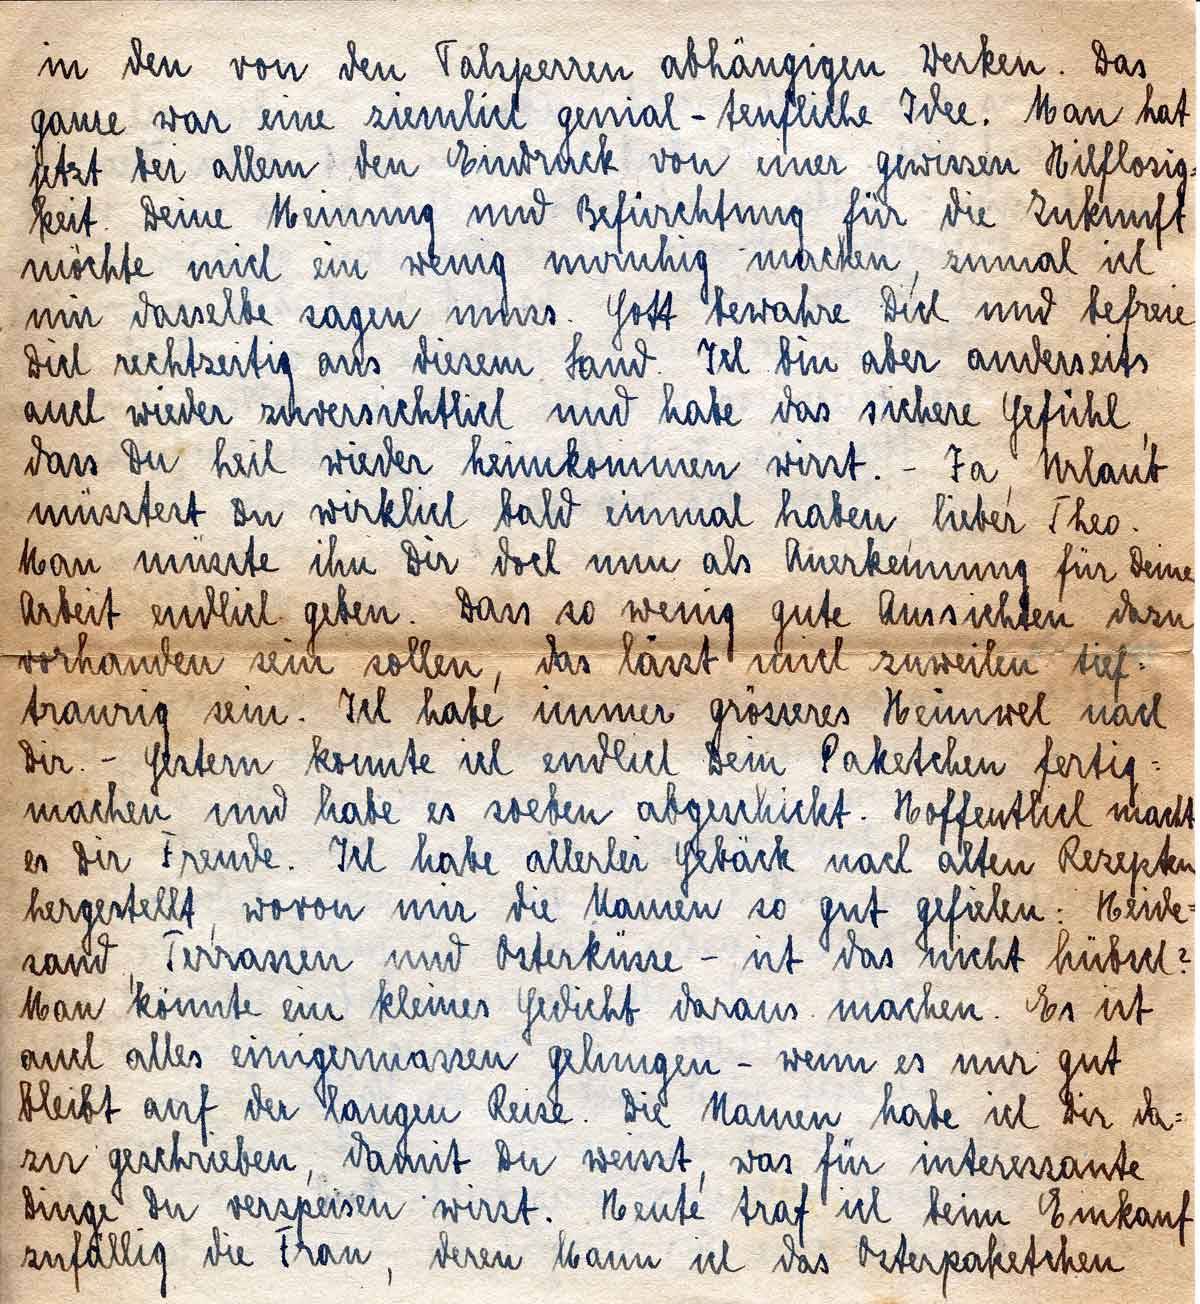 in den von den Talsperren abhängigen Werken. Das
ganze war eine ziemlich genial-teufliche Idee. Man hat
jetzt bei allem den Eindruck von einer gewissen Hilflosig=
keit. Deine Meinung und Befürchtung für die Zukunft
möchte mich ein wenig unruhig machen, zumal ich
mir dasselbe sagen muss. Gott bewahre Dich und befreie
Dich rechtzeitig aus diesem Land. Ich bin aber anderseits
auch wieder zuversichtlich und habe das sichere Gefühl,
dass Du heil wieder heimkommen wirst. - Ja, Urlaub
müsstest Du wirklich bald einmal haben, lieber Theo.
Man müsste ihn Dir doch nun als Anerkennung für Deine
Arbeit endlich geben. Dass so wenig gute Aussichten dazu
vorhanden sein sollen, das lässt mich zuweilen tief=
traurig sein. Ich habe immer grösseres Heimweh nach
Dir. - Gestern konnte ich endlich Dein Paketchen fertig=
machen und habe es soeben abgeschickt. Hoffentlich macht
es Dir Freude. Ich habe allerlei Gebäck nach alten Rezepten
hergestellt, wovon mir die Namen so gut gefielen: Heide=
sand, Terrassen und Osterküsse - ist das nicht hübsch?
Man könnte ein kleines Gedicht daraus machen. Es ist
auch alles einigermassen gelungen - wenn es nur gut
bleibt auf der langen Reise. Die Namen habe ich Dir da=
zu geschrieben, damit Du weisst, was für interessante
Dinge Du verspeisen wirst. Heute traf ich beim Einkauf
zufällig die Frau, deren Mann ich das Osterpaketchen